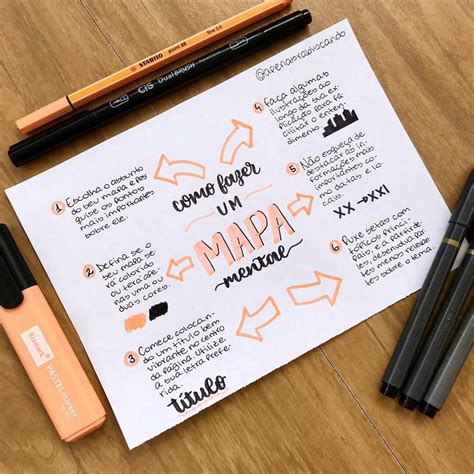 STABILO point 88 fine 0.4
CIS DualBrush
@apenasrabiscando
como fazer
um
MAPA
mental
1 Escolha o assunto
do seu mapa e pes
quise os pontos
mais importantes
sobre ele.
2 Defina se o
seu mapa se
rá colorido
ou terá ape
nas uma ou
duas cores.
3 Comece colocan
do um título bem
vibrante no centro
da página. Utilize
a sua letra prefe
rida.
título
4 Faça algumas
ilustrações ao
longo da sua ex
plicação para fa
cilitar o enten
dimento.
5 Não esqueça de
destacar as in
formações mais
importantes, co
mo datas e lo
cais.
XX → XXI
6 Puxe setas com
tópicos princi
pais e a partir
deles, desenvolva par
tes menos relevan
tes sobre o tema.
Bismark
PASTELmarker